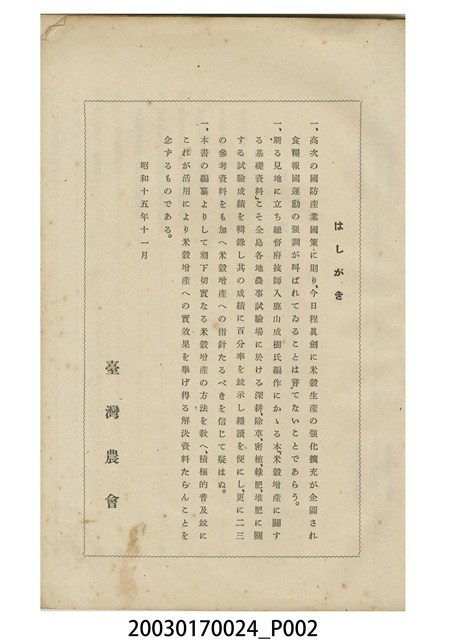 はしがき
一、高次の國防産業國策に則り、今日程眞劍に米穀生産の强化擴充が企圖され
食糧報國運動の强調が叫ばれてゐることは嘗てないことであらう。
一、斯る見地に立ち總督府技師入鹿山成樹氏編作にかゝる本「米穀增産に關す
る基礎資料」こそ全島各地農事試驗場に於ける深耕、除草、密植、綠肥、堆肥に關
する試驗成績を輯錄し其の成績に百分率を竝示し繙讀を便にし、更に二三
の參考資料をも加へ米穀增産への指針たるべきを信じて疑はぬ。
一、本書の編纂よりして刻下切實なる米穀增産の方法を敎へ、積極的普及竝に
これが活用により米穀增産への實效果を擧げ得る解決資料たらんことを
念ずるものである。
昭和十五年十一月
臺灣農會
20030170024_P002